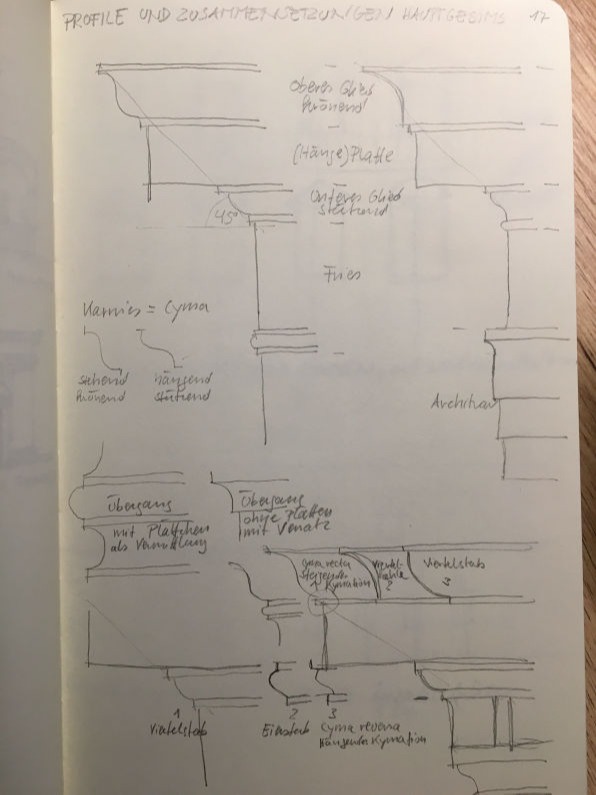 PROFILE UND ZUSAMMENSETZUN/GEN/ HAUPTGESIMS 17
Oberes Glied
krönend
(Hänge)Platte
Unteres Glied
stützend
45°
Fries
Karnies = Cyma
stehend
krönend
hängend
stützend
Architrav
Übergang
mit Plättchen
als Vermittlung
Übergang
ohne Platten
mit Versatz
cyma recta
steigendes
1 Kymation
Viertel-
kehle
2
Viertelstab
3
1
Viertelstab
2
Eierstab
3
Cyma reversa
Hängendes Kymation